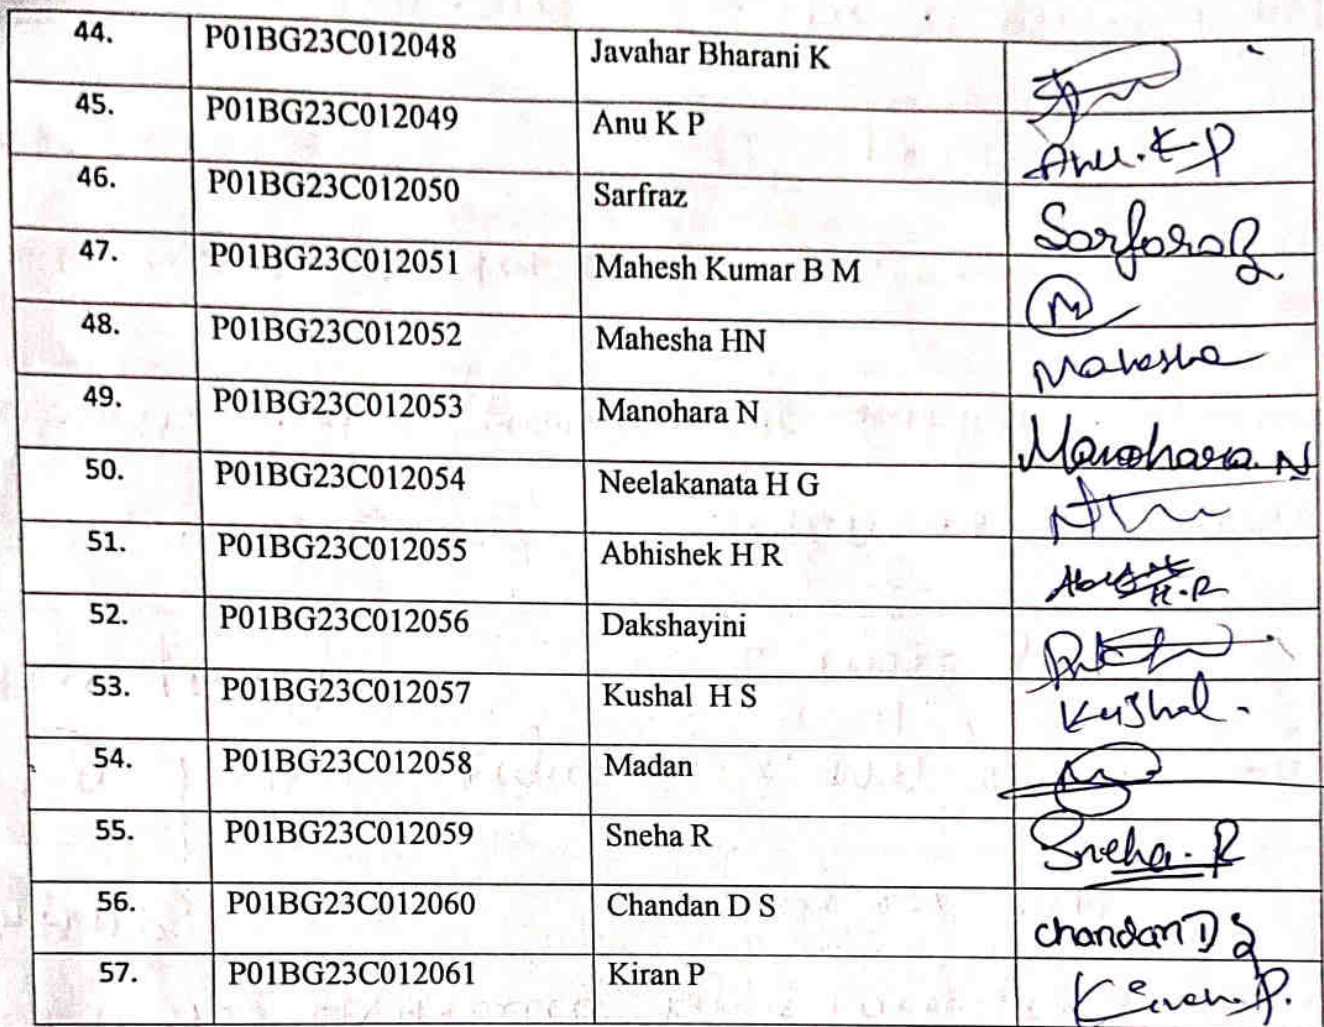 44. P01BG23C012048 Javahar Bharani K
45. P01BG23C012049 Anu K P Anu. K P
46. P01BG23C012050 Sarfraz Sarfaraz
47. P01BG23C012051 Mahesh Kumar B M M
48. P01BG23C012052 Mahesha HN Mahesha
49. P01BG23C012053 Manohara N Manohara. N
50. P01BG23C012054 Neelakanata H G
51. P01BG23C012055 Abhishek H R H.R
52. P01BG23C012056 Dakshayini
53. P01BG23C012057 Kushal H S Kushal.
54. P01BG23C012058 Madan
55. P01BG23C012059 Sneha R Sneha. R
56. P01BG23C012060 Chandan D S Chandan D S
57. P01BG23C012061 Kiran P Kiran. P.